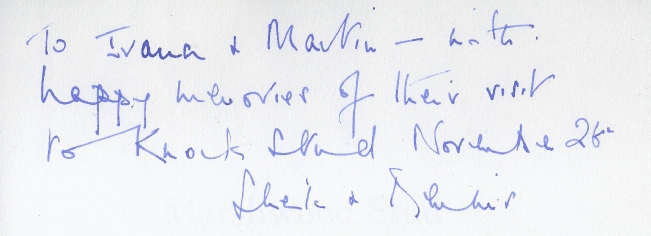 To Ivana & Martin – with
happy memories of their visit
to Knock Stud November
Sheila &